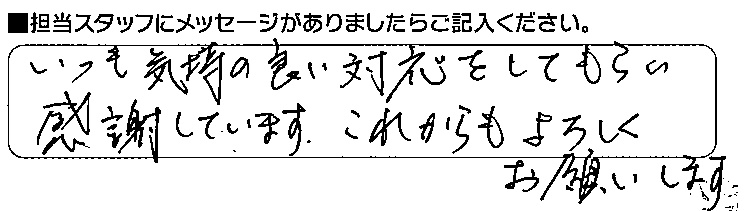 ■担当スタッフにメッセージがありましたらご記入ください。
いつも気持の良い対応をしてもらい
感謝しています。これからもよろしく
お願いします